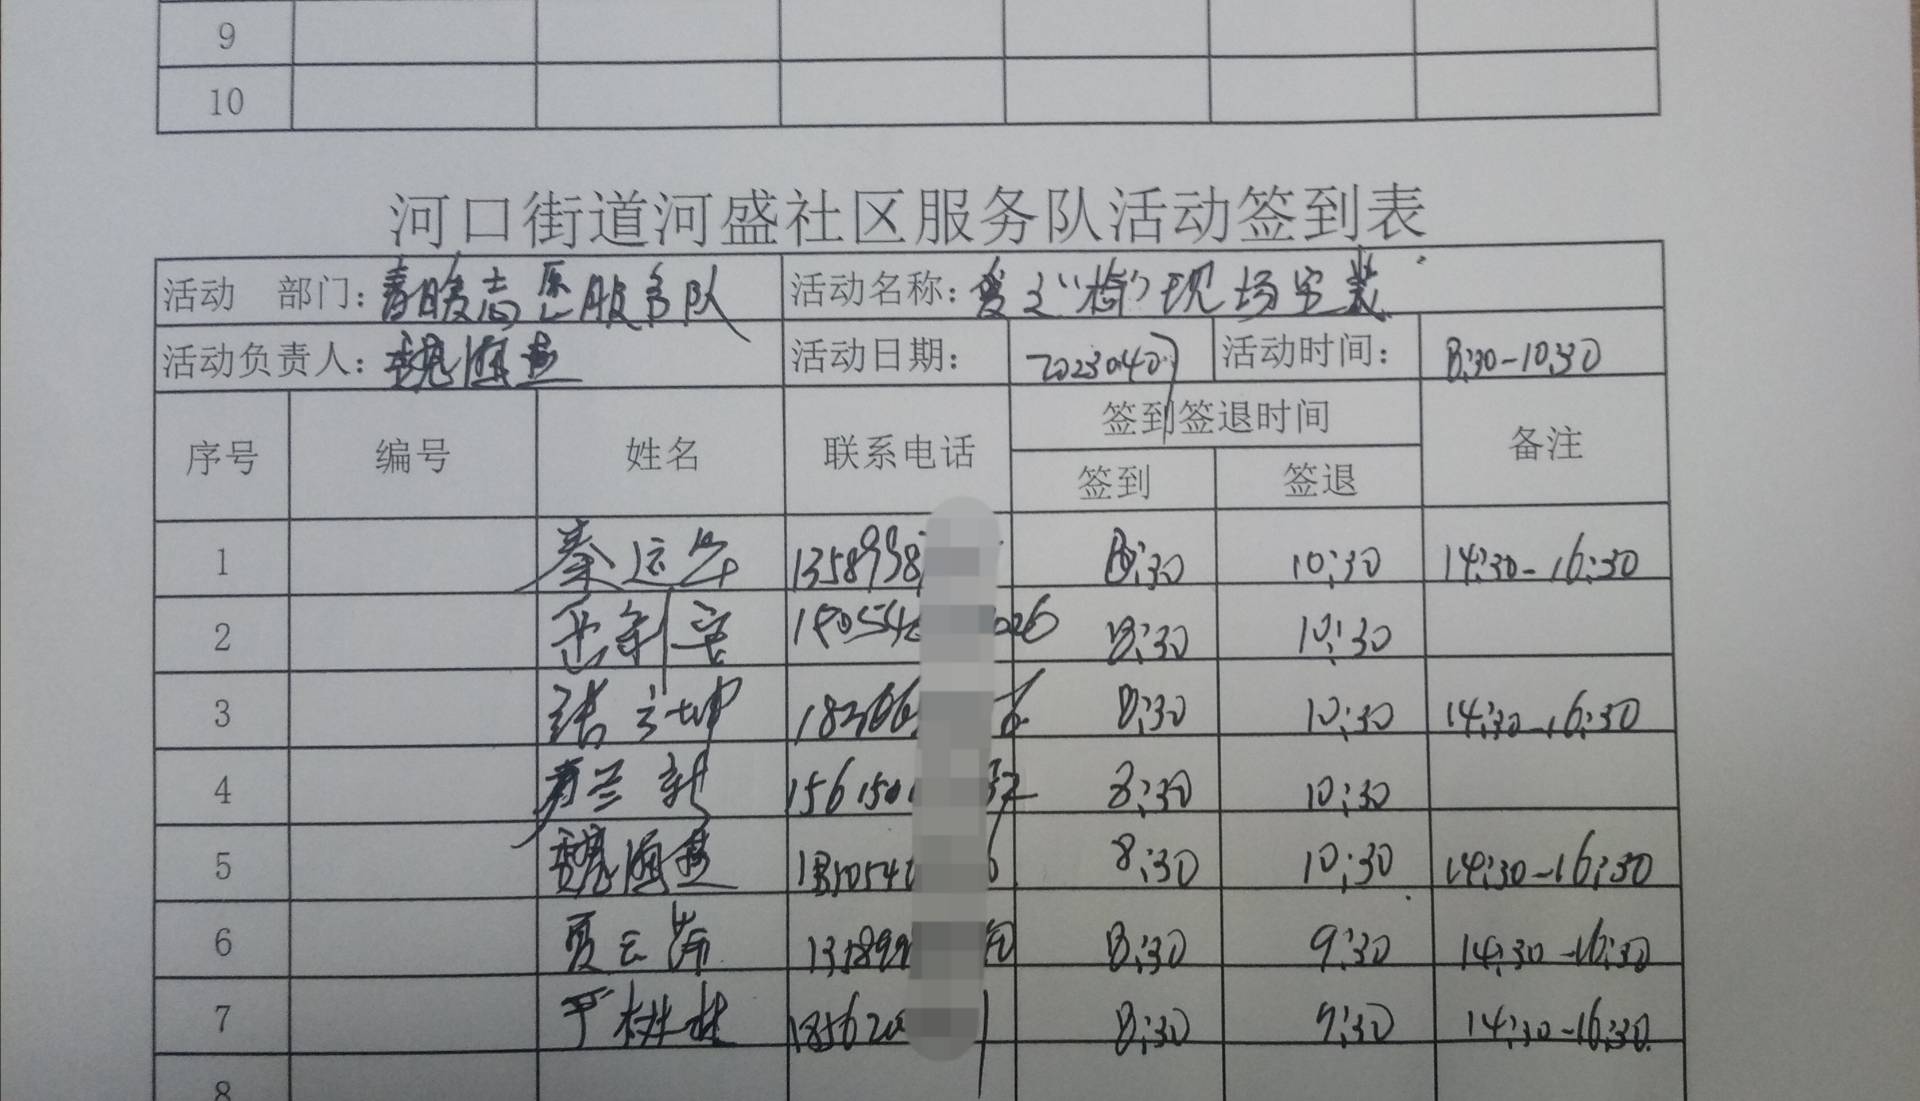 9
10
河口街道河盛社区服务队活动签到表
活动 部门：春暖志愿服务队 活动名称：爱之"橱"现场安装
活动负责人：魏海燕 活动日期： 20230407 活动时间： 8:30-10:30
序号 编号 姓名 联系电话 签到签退时间 备注
签到 签退
1 秦运 1358998 8:30 10:30 14:30-16:30
2 180554 026 8:30 10:30
3 坤 18266 6 8:30 10:30 14:30-16:30
4 兰新 156150 32 8:30 10:30
5 魏海燕 1810540 6 8:30 10:30 14:30-16:30
6 夏云 135899 0 8:30 9:30 14:30-16:30
7 林 185620 1 8:30 9:30 14:30-16:30
8